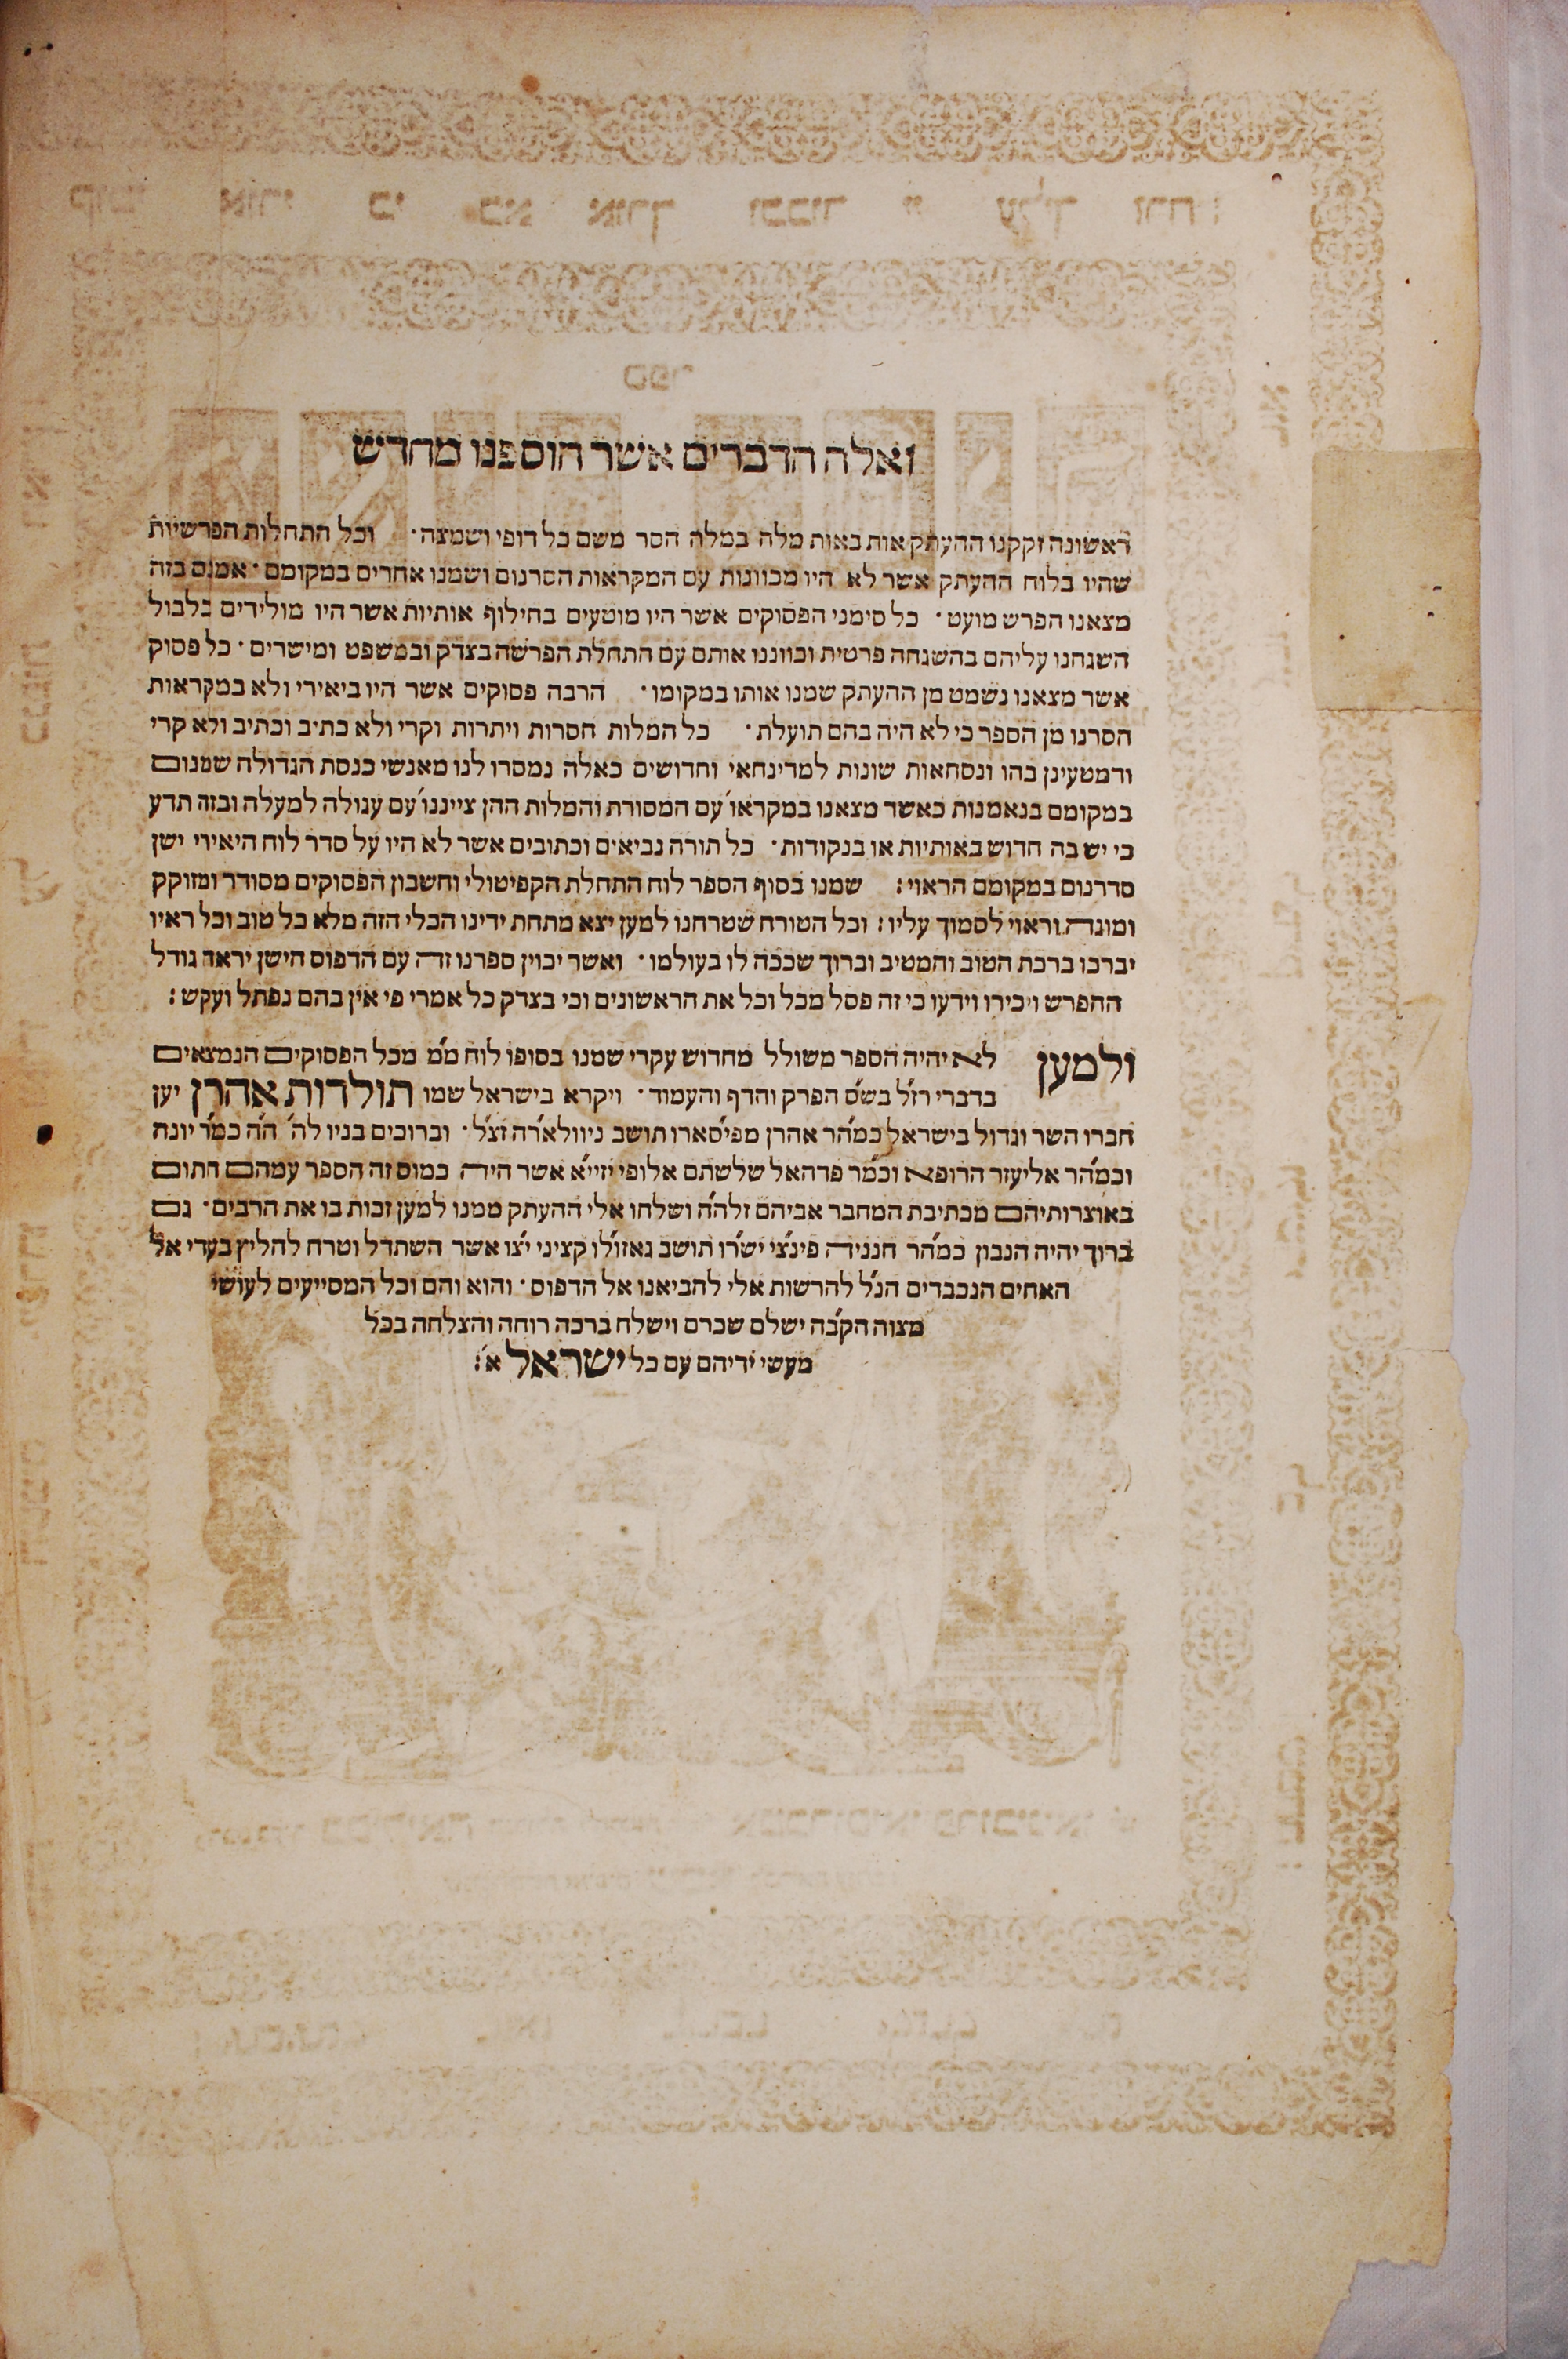 ואלה הדברים אשר הוספנו מחדש
ראשונה זקקנו ההעתק אות באות מלה במלה הסר משם כל דופי ושמצה· וכל התחלות הפרשיות
שהיו בלוח ההעתק אשר לא היו מכוונות עם המקראות הסרנום ושמנו אחרים במקומם· אמנם בזה
מצאנו הפרש מועט· כל סימני הפסוקים אשר היו מוטעים בחילוף אותיות אשר היו מולידים בלבול
השגחנו עליהם בהשגחה פרטית וכווננו אותם עם התחלת הפרשה בצדק ובמשפט ומישרים· כל פסוק
אשר מצאנו נשמט מן ההעתק שמנו אותו במקומו· הרבה פסוקים אשר היו ביאירי ולא במקראות
הסרנו מן הספר כי לא היה בהם תועלת· כל המלות חסרות ויתרות וקרי ולא כתיב וכתיב ולא קרי
ודמטעינן בהו ונסחאות שונות למדינחאי וחדושים כאלה נמסרו לנו מאנשי כנסת הגדולה שמנום
במקומם בנאמנות כאשר מצאנו במקראו׳ עם המסורת והמלות ההן צייננו׳ עם עגולה למעלה ובזה תדע
כי יש בה חדוש באותיות או בנקודות· כל תורה נביאים וכתובים אשר לא היו על סדר לוח היאירי ישן
סדרנום במקומם הראוי: שמנו בסוף הספר לוח התחלת הקפיטולי וחשבון הפסוקים מסודר ומזוקק
ומוגה וראוי לסמוך עליו: וכל הטורח שטרחנו למען יצא מתחת ידינו הכלי הזה מלא כל טוב וכל ראיו
יברכו ברכת הטוב והמטיב וברוך שככה לו בעולמו· ואשר יכוין ספרנו זה עם הדפוס הישן יראה גודל
ההפרש ויכירו וידעו כי זה פסל מכל וכל את הראשונים וכי בצדק כל אמרי פי אין בהם נפתל ועקש:
ולמען לא יהיה הספר משולל מחדוש עקרי שמנו בסופו לוח ממ׳ מכל הפסוקים הנמצאים
בדברי רז״ל בש״ס הפרק והדף והעמוד· ויקרא בישראל שמו תולדות אהרן יען
חברו השר וגדול בישראל כמה״ר אהרן מפיסארו תושב ניוולארה זצ״ל· וברוכים בניו לה׳ ה״ה כמ״ר יונה
וכמה״ר אליעזר הרופא וכמ״ר פדהאל שלשתם אלופי יזיי״א אשר היה כמוס זה הספר עמהם חתום
באוצרותיהם מכתיבת המחבר אביהם זלה״ה ושלחו אלי ההעתק ממנו למען זכות בו את הרבים· גם
ברוך יהיה הנבון כמה״ר חנניה פינצי יש״רו תושב גאזולו קציני יצ״ו אשר השתדל וטרח להליץ בעדי אל
האחים הנכבדים הנ״ל להרשות אלי להביאנו אל הדפוס· והוא והם וכל המסייעים לעושי
מצוה הקב״ה ישלם שכרם וישלח ברכה רוחה והצלחה בכל
מעשי ידיהם עם כל ישראל א׳: